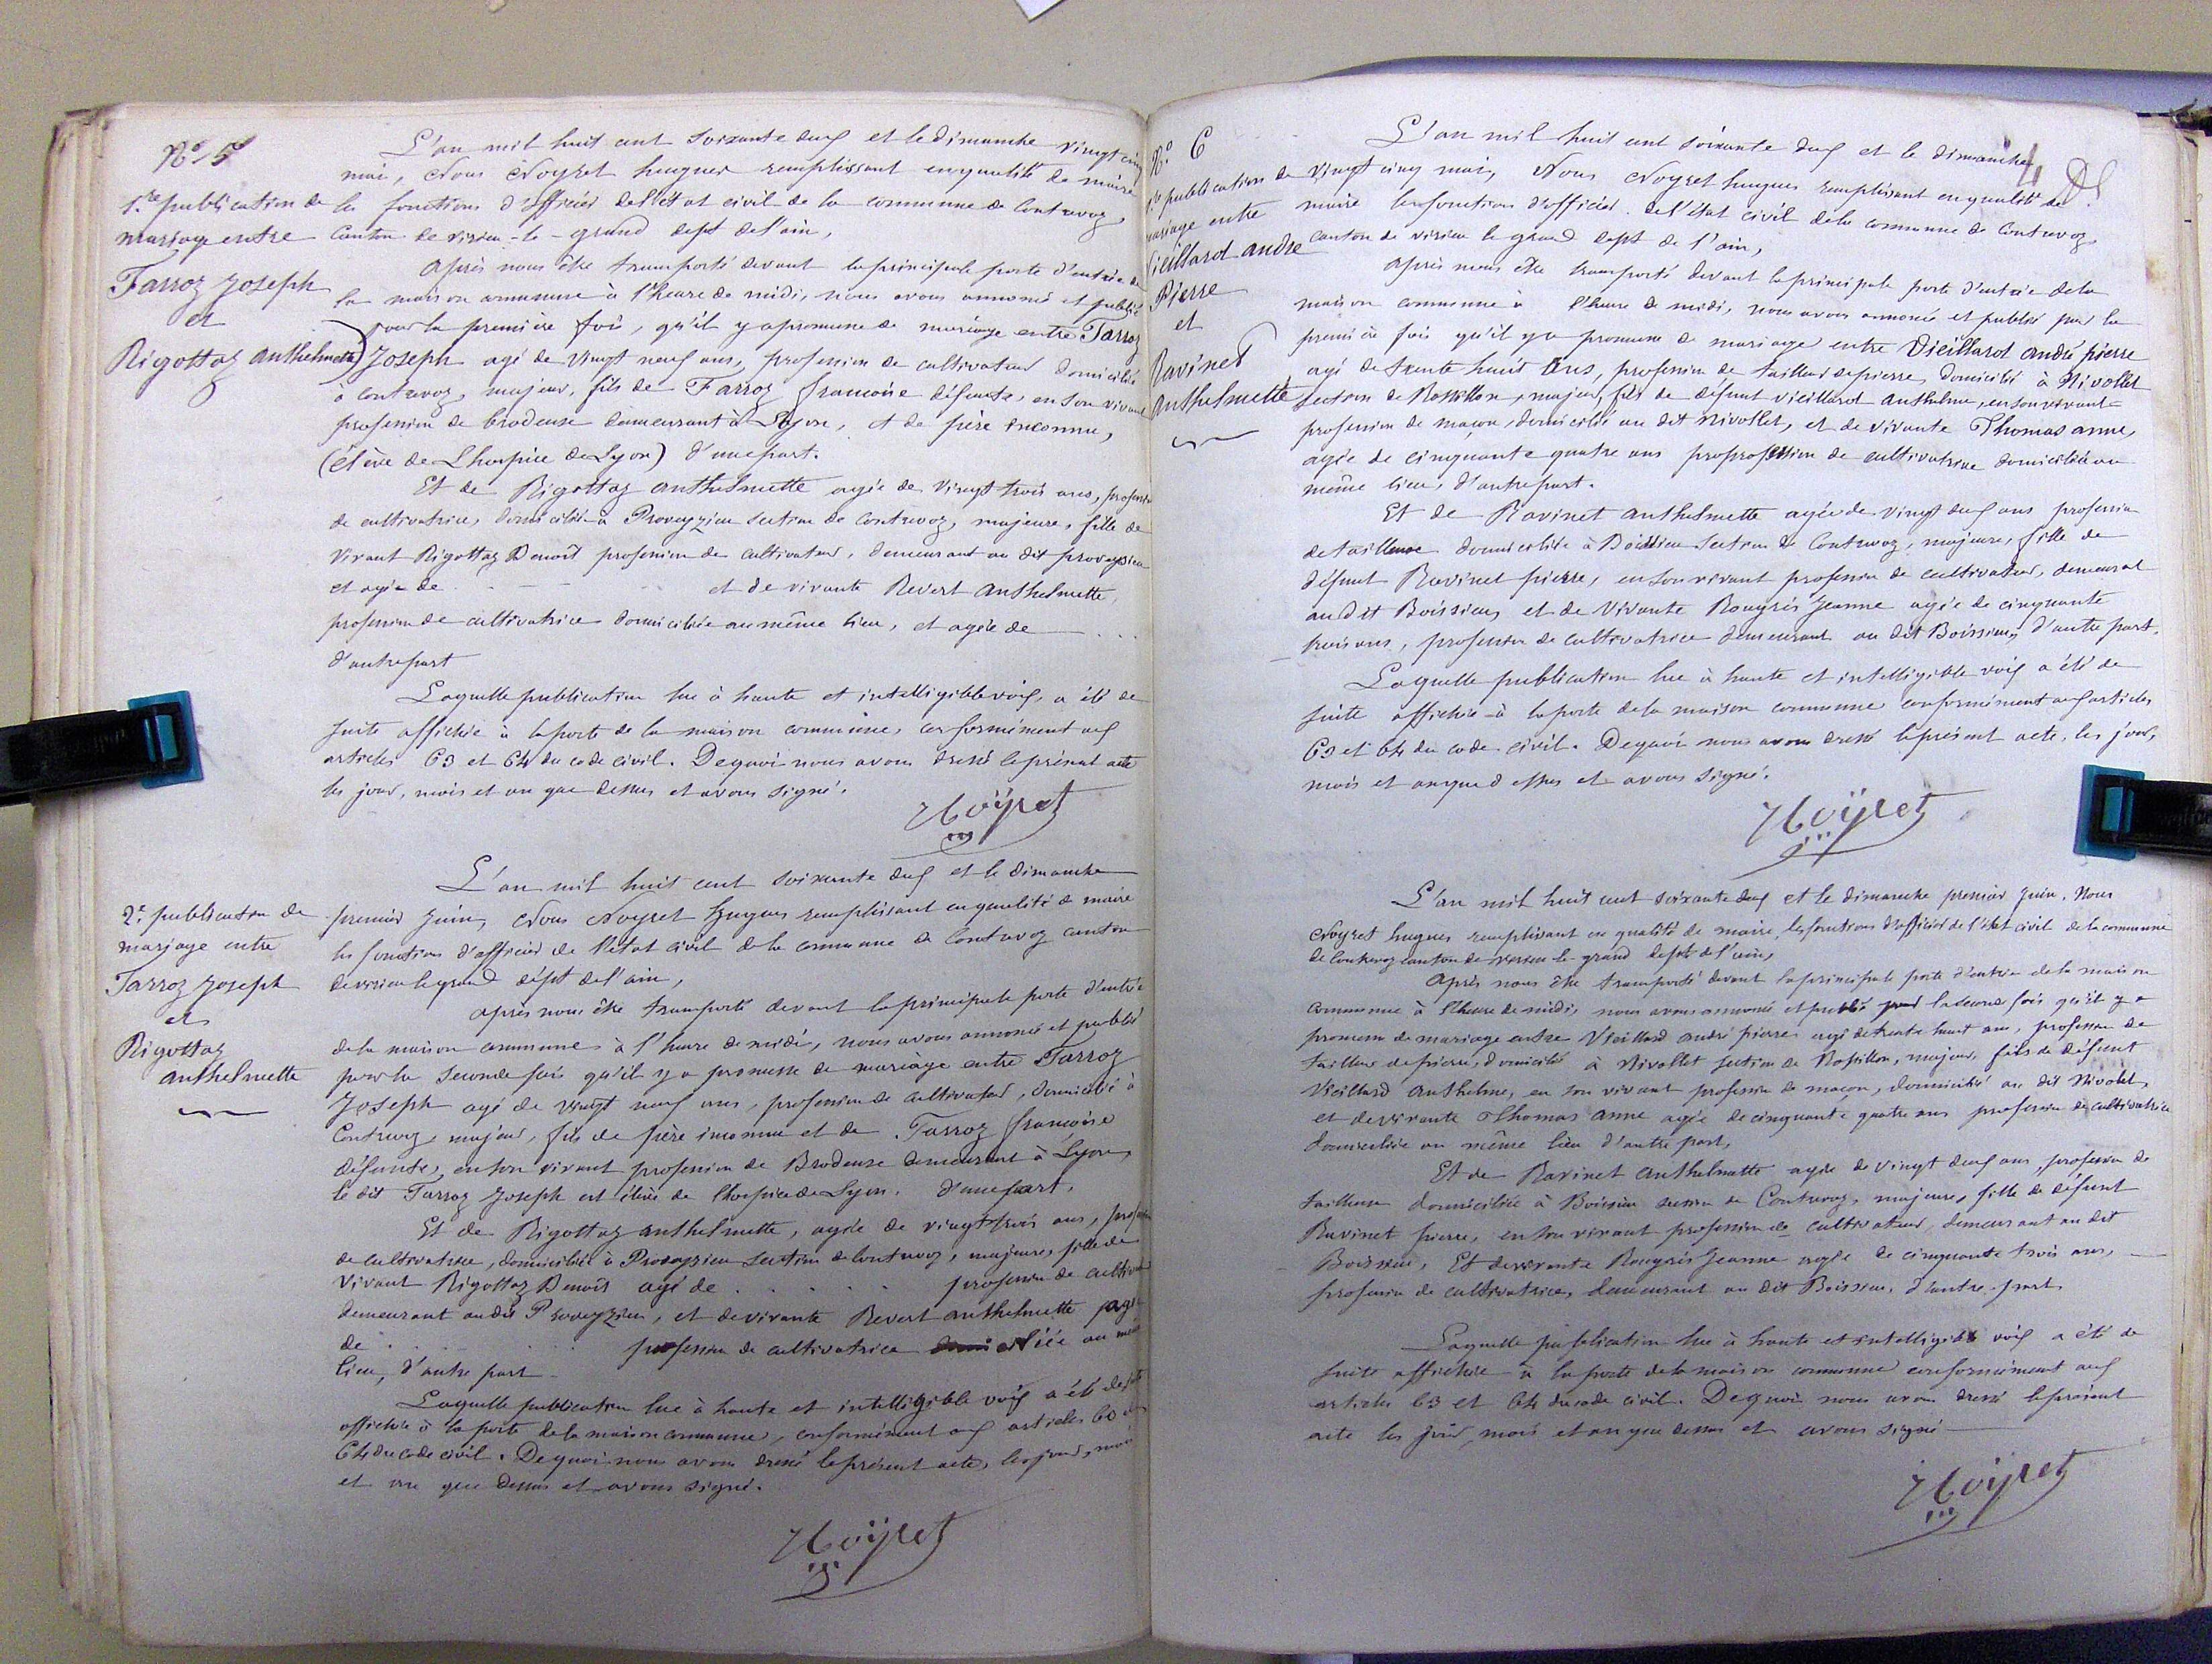 N.º 5
1.re publication de
mariage entre
Farroz Joseph
et
Rigottaz anthelmette
L'an mil huit cent soixante deux et le dimanche vingt cinq
mai, Nous Noyret hugues remplissant en qualité de maire
les fonctions d'officier de l'état civil de la commune de Contrevoz,
Canton de virieu-le-grand dépt de l'ain,
après nous être transporté devant la principale porte d'entrée de
la maison commune à l'heure de midi, nous avons annoncé et publié
pour la première fois, qu'il y a promesse de mariage entre Farroz
Joseph agé de vingt neuf ans, profession de cultivateur domicilié
à Contrevoz, majeur, fils de Farroz francoise défunte, en son vivant
profession de brodeuse demeurant à Lyon, et de père inconnu,
(élève de L'hospice de Lyon) d'une part.
Et de Rigottaz anthelmette agée de vingt trois ans, profession
de cultivatrice, domiciliée à Proveyzieu section de Contrevoz, majeure, fille de
vivant Rigottaz Benoît profession de cultivateur, demeurant au dit proveyzieu
et agé de . et de vivante Revert anthelmette,
profession de cultivatrice domiciliée au même lieu, et agée de ...
d'autre part
Laquelle publication lue à haute et intelligible voix, a été de
suite affichée à la porte de la maison commune, conformément aux
articles 63 et 64 du code civil. De quoi nous avons dressé le présent acte
les jour, mois et an que dessus et avons signé.
Noÿret
2.e publication de
mariage entre
Farroz Joseph
et
Rigottaz
anthelmette
L'an mil huit cent soixante deux et le dimanche
premier Juin, Nous Noyret hugues remplissant en qualité de maire
les fonctions d'officier de l'état civil de la commune de Contrevoz canton
de virieu le grand dépt de l'ain,
après nous être transporté devant la principale porte d'entrée
de la maison commune à l'heure de midi, nous avons annoncé et publié
pour la seconde fois qu'il y a promesse de mariage entre Farroz
Joseph agé de vingt neuf ans, profession de cultivateur, domicilié à
Contrevoz, majeur, fils de père inconnu et de Farroz francoise
défunte, en son vivant profession de Brodeuse demeurant à Lyon,
le dit Farroz Joseph est élève de l'hospice de Lyon. d'une part,
Et de Rigottaz anthelmette, agée de vingt trois ans, profession
de cultivatrice, domiciliée à Proveyzieu section de Contrevoz, majeure, fille de
vivant Rigottaz Benoît agé de . . . . . profession de cultivateur
demeurant au dit Proveyzieu, et de vivante Revert anthelmette agée
de . . . profession de cultivatrice au même
lieu, d'autre part.
Laquelle publication lue à haute et intelligible voix a été de suite
affichée à la porte de la maison commune, conformément aux articles 63 et
64 du code civil. De quoi nous avons dressé le présent acte, les jour, mois
et an que dessus et avons signé.
Noÿret
N.º 6
1.re publication de
mariage entre
Vieillard andré
Pierre
et
Ravinet
anthelmette
L'an mil huit cent soixante deux et le dimanche
vingt cinq mai, Nous Noyret hugues remplissant en qualité de
maire les fonctions d'officier de l'état civil de la commune de Contrevoz,
canton de virieu le grand dépt de l'ain,
après nous être transporté devant la principale porte d'entrée de la
maison commune à l'heure de midi, nous avons annoncé et publié pour la
première fois qu'il y a promesse de mariage entre Vieillard andré pierre
agé de trente huit ans, profession de tailleur de pierre, domicilié à Nivollet
section de Rossillon, majeur, fils de défunt vieillard anthelme, en son vivant
profession de maçon, domicilié au dit nivollet, et de vivante Thomas anne,
agée de cinquante quatre ans proprofession de cultivatrice domiciliée au
même lieu, d'autre part.
Et de Ravinet anthelmette agée de vingt deux ans profession
de tailleuse domiciliée à Boissieu section de Contrevoz, majeure, fille de
défunt Ravinet pierre, en son vivant profession de cultivateur, demeurant
au dit Boissieu, et de vivante Jeanne agée de cinquante
trois ans, profession de cultivatrice demeurant au dit Boissieu, d'autre part.
Laquelle publication lue à haute et intelligible voix a été de
suite affichée à la porte de la maison commune conformément aux articles
63 et 64 du code civil. De quoi nous avons dressé le présent acte, les jour,
mois et an que dessus et avons signé.
Noÿret
L'an mil huit cent soixante deux et le dimanche premier Juin. Nous
Noyret hugues remplissant en qualité de maire, les fonctions d'officier de l'état civil de la commune
de Contrevoz canton de virieu-le-grand dépt de l'ain,
Après nous être transporté devant la principale porte d'entrée de la maison
commune à l'heure de midi, nous avons annoncé et publié pour la seconde fois qu'il y a
promesse de mariage entre Vieillard andré pierre agé de trente huit ans, profession de
tailleur de pierre, domicilié à Nivollet section de Rossillon, majeur, fils de défunt
Vieillard anthelme, en son vivant profession de maçon, domicilié au dit Nivolet,
et de vivante Thomas anne agée de cinquante quatre ans profession de cultivatrice
domiciliée au même lieu d'autre part,
Et de Ravinet anthelmette agée de vingt deux ans, profession de
tailleuse domiciliée à Boissieu section de Contrevoz, majeure, fille de défunt
Ravinet pierre, en son vivant profession de cultivateur, demeurant au dit
Boissieu, Et de vivante Jeanne agée de cinquante trois ans,
profession de cultivatrice, demeurant au dit Boissieu, d'autre part.
Laquelle publication lue à haute et intelligible voix a été de
suite affichée à la porte de la maison commune conformément aux
articles 63 et 64 du code civil. De quoi nous avons dressé le présent
acte les jour, mois et an que dessus et avons signé
Noÿret